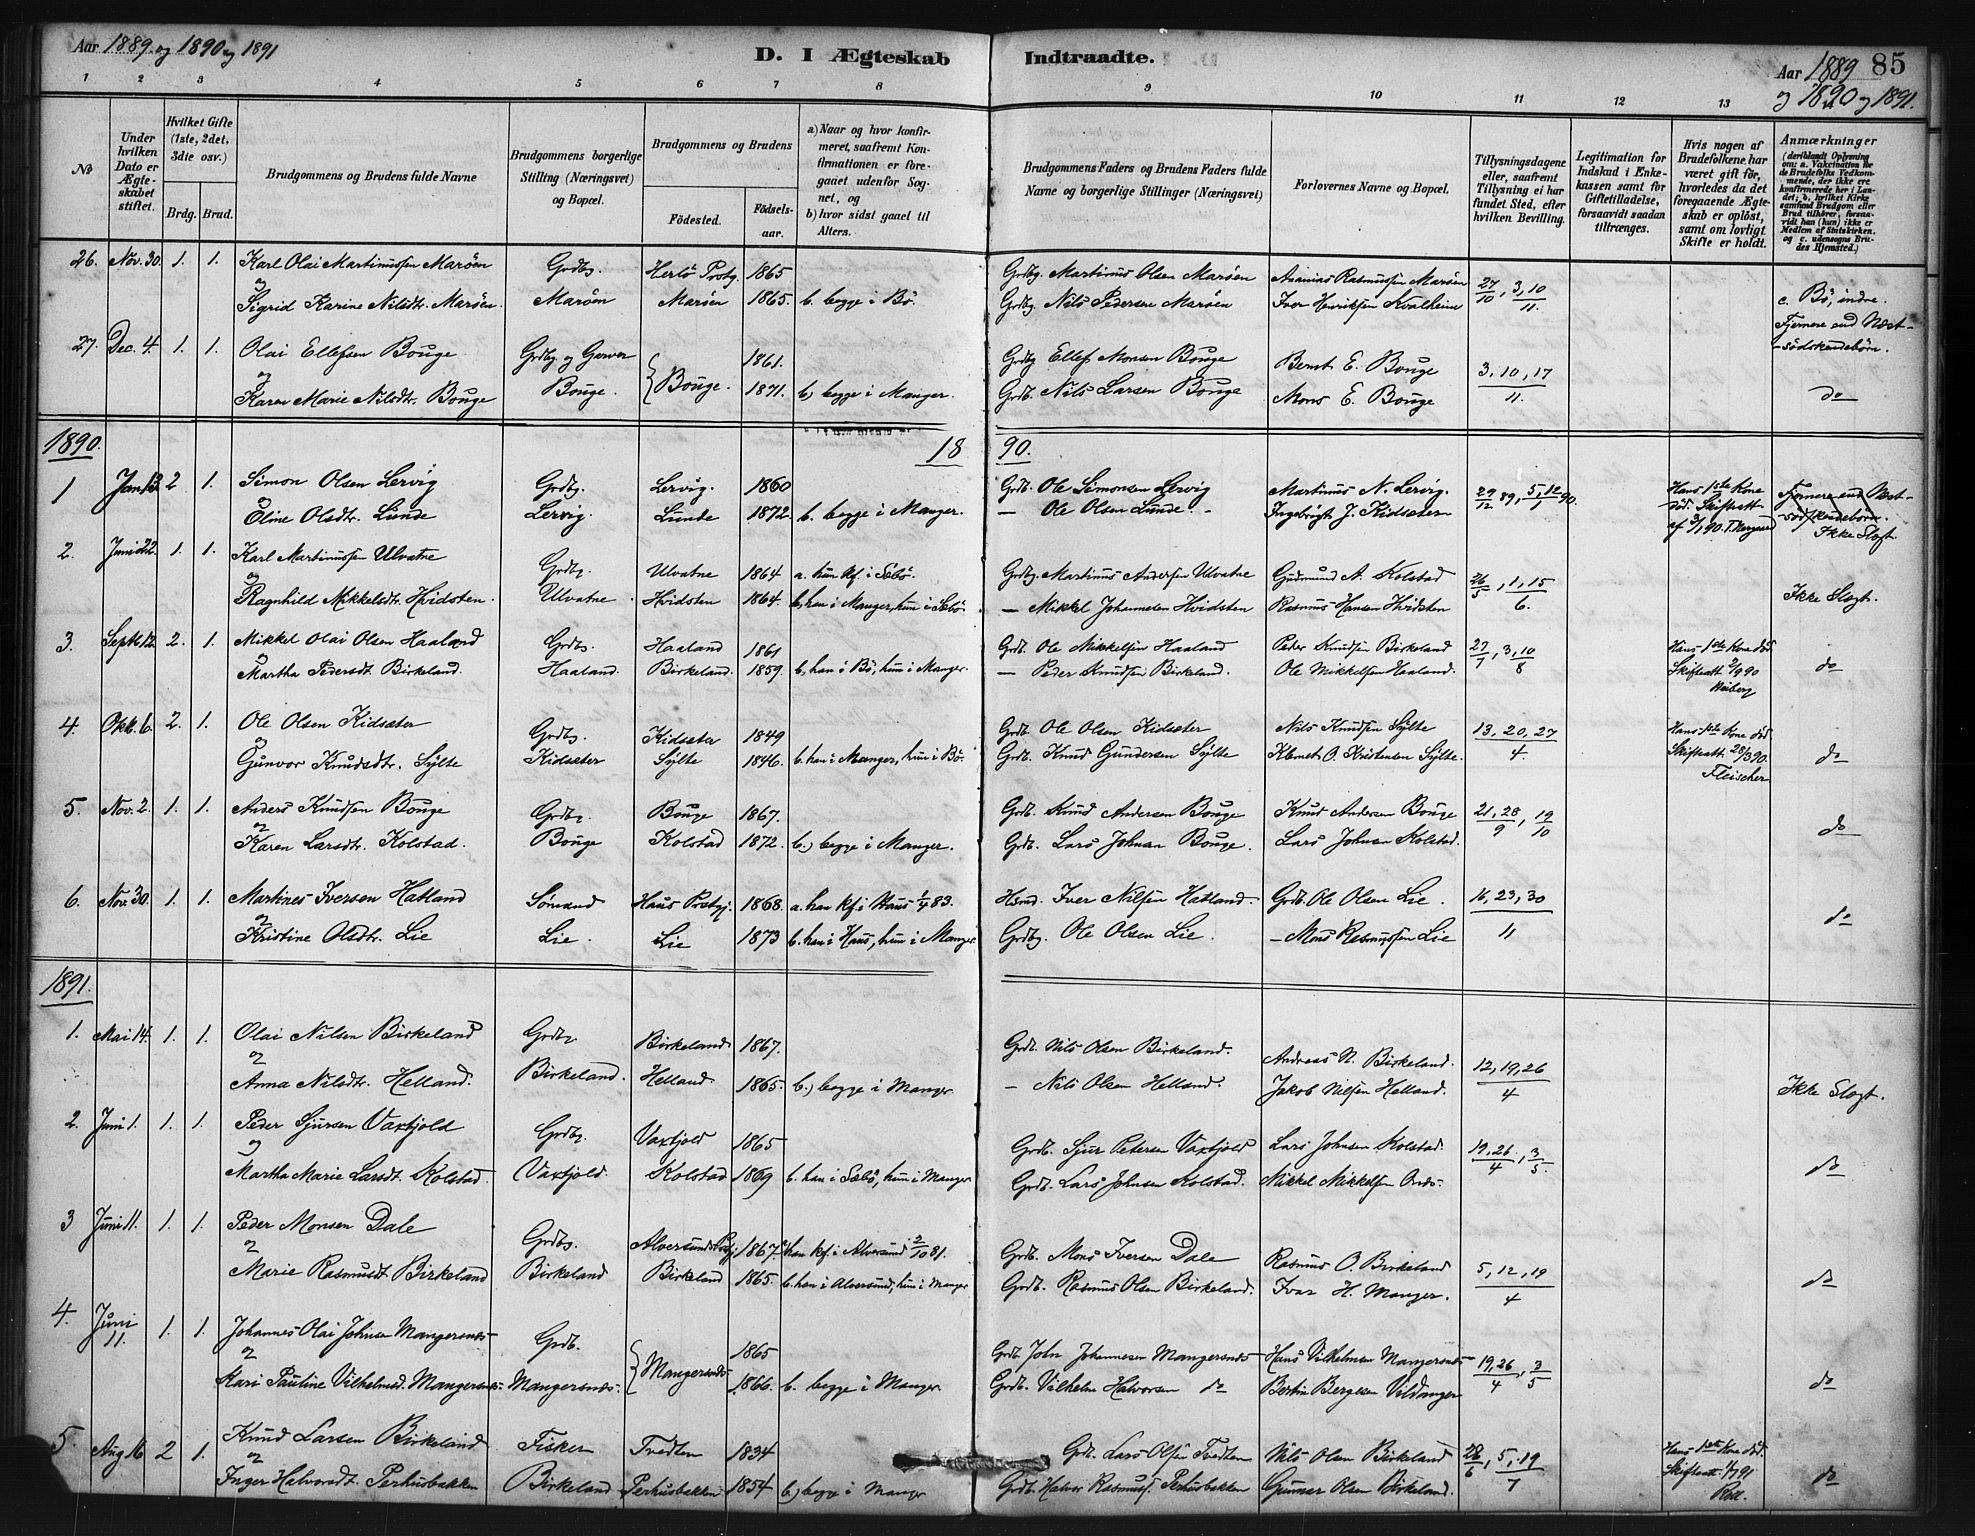 Aar 1889. og 1890 og 1891
D. I Ægteskab Indtraadte.
Aar 1889 85
og 1890 og 1891.
1 2 3 4 5 6 7 8 9 10 11 12 13 14
No
Under hvilken Dato er Ægteskabet stiftet.
Hvilket Gifte (1ste, 2det, 3die osv.)
Brdg. Brud.
Brudgommens og Brudens fulde Navne
Brudgommens borgerlige Stilling (Næringsvei) og Bopæl.
Brudgommens og Brudens
Fødested. Fødselsaar.
a) Naar og hvor konfirmeret, saafremt Konfirmationen er foregaaet udenfor Sognet, og
b) hvor sidst gaaet til Alters.
Brudgommens Faders og Brudens Faders fulde Navne og borgerlige Stillinger (Næringsvei)
Forlovernes Navne og Bopæl.
Tillysningsdagene eller, saafremt Tillysning ei har fundet Sted, efter hvilken Bevilling.
Legitimation for Indskud i Enkekassen samt for Giftetilladelse, forsaavidt saadan tiltrænges.
Hvis nogen af Brudefolkene har været gift før, hvorledes da det foregaaende Ægteskab er opløst, samt om lovligt Skifte er holdt.
Anmærkninger
(deriblandt Oplysning om: a. Vakcination for de Brudefolks Vedkommende, der ikke ere konfirmerede her i Landet; b. hvilket Kirkesamfund Brudgom eller Brud tilhører, forsaavidt han (hun) ikke er Medlem af Statskirken, og c. udensogns Brudes Hjemsted.)
26. Nov. 30. 1. 1. Karl Olai Martinussen Marøen Grdbg. Herlø Prstg. 1865 Grdbg. Martinus Olsen Marøen Ananias Rasmussen Marøen 27/10, 3, 10/11. c. Bø, indre.
og Sigrid Karine Nilsdtr. Marøen. Marøen Marøen 1865. b. begge i Bø. Grdbg. Nils Pedersen Marøen Iver Henriksen Kvalheim Fjernere end Næstsødskendebørn.
27. Dec. 4. 1. 1. Olai Ellefsen Bouge Grdbg. og Garver 1861. Grdbg Ellef Monsen Bouge Bernt E. Bouge 3, 10, 17/11.
og Karen Marie Nilsdtr. Bouge Bouge. Bouge. 1871. b) begge i Manger. Grdb. Nils Larsen Bouge Mons E. Bouge do
1890. 18 90.
1 Jan. 13. 2 1. Simon Olsen Lervig Grdbg. Lervig. 1860 Grdb. Ole Simonsen Lervig Martinus N. Lervig. 29/12 89, 5, 12/1 90. Hans 1ste Kone Fjernere end Næst-
og Oline Olsdtr. Lunde Lervig. Lunde 1872. b. begge i Manger. — Ole Olsen Lunde. Ingebrigt J. Kidsæter død. Skifteatt. sødskendebørn.
af 3/1 90. Ikke Slægt
2. Juni 22. 1. 1. Karl Martinussen Ulvatne Grdbg. Ulvatne 1864 a. hun kf. i Sæbø. Grdbg. Martinus Andersen Ulvatne Gudmund A. Kolstad 26/5, 1, 15/6.
og Ragnhild Mikkelsdtr. Hvidsten. Ulvatne Hvidsten 1864. b. han i Manger, hun i Sæbø — Mikkel Johannesen Hvidsten Rasmus Hansen Hvidsten Ikke Slægt.
3. Septb. 12. 2. 1. Mikkel Olai Olsen Haaland Grdbg. Haaland 1861 Grdb. Ole Mikkelsen Haaland Peder Knudsen Birkeland 27/7, 3, 10/8 Hans 1ste Kone død
og Martha Pedersdt. Birkeland. Haaland. Birkeland. 1859. b. han i Bø, hun i Manger. — Peder Knudsen Birkeland. Ole Mikkelsen Haaland. Skifteatt 2/9 90 do
4. Oktb. 6. 2. 1. Ole Olsen Kidsæter Grdbg. Kidsæter 1849 Grdb. Ole Olsen Kidsæter Nils Knudsen Sylte 13, 20, 27/4. Hans 1ste Kone død
og Gunvor Knudsdtr. Sylte Kidsæter Sylte 1846. b. han i Manger, hun i Bø. Grdb. Knud Gundersen Sylte Klemet O. Kristensen Sylte. Skifteatt 28/3 90. do
Fleischer
5. Nov. 2. 1. 1. Anders Knudsen Bouge Grdbg. Bouge 1867. Grdb. Knud Andersen Bouge Knud Andersen Bouge 21, 28/9, 19/10
og Karen Larsdt. Kolstad. Bouge Kolstad 1872. b.) begge i Manger. Grdb. Lars Johnsen Bouge. Lars Johnsen Kolstad. do
6. Nov. 30. 1. 1. Martines Iversen Hatland Sømand Haus Prstgj. 1868. a. han kf. i Haus 1/4 83. Hsmd. Iver Nilsen Hatland. Grdb. Ole Olsen Lie. 16, 23, 30/11
og Kristine Olsdtr. Lie Lie. Lie 1873 b. han i Haus, hun i Manger. Grdbg. Ole Olsen Lie. — Mons Rasmussen Lie do
1891.
1. Mai 14. 1. 1. Olai Nilsen Birkeland Grdbg Birkeland 1867. Grdb. Nils Olsen Birkeland. Andreas N. Birkeland. 12, 19, 26/4
og Anna Nilsdt. Helland. Birkeland. Helland. 1865. b.) begge i Manger — Nils Olsen Helland. Jakob Nilsen Helland. Ikke Slægt.
2. Juni 1. 1. 1. Peder Sjursen Vaxtjold Grdbg. Vaxtjold 1865 Grdb. Sjur Petersen Vaxtjold Lars Johnsen Kolstad. 19, 26/4, 3/5.
og Martha Marie Larsdt. Kolstad. Vaxtjold. Kolstad 1869 b. han i Sæbø, hun i Manger Grdb. Lars Johnsen Kolstad. Mikkel Mikkelsen do
3 Juni 11. 1. 1. Peder Monsen Dale Grdbg. Alversund Prstgj. 1867. a. han kf. i Alversund 2/10 81. Grdb. Mons Iversen Dale Rasmus O. Birkeland 5, 12, 19/4
og Marie Rasmusdt. Birkeland Birkeland Birkeland 1865. b. han i Alversund, hun i Manger Grdb. Rasmus Olsen Birkeland. Ivar H. Manger. do
4. Juni 11. 1. 1. Johannes Olai Johnsen Mangersnæs Grdb. 1865 Grdb. John Johannesen Mangersnæs Hans Vilhelmsen Mangersnæs 19, 26/4, 3/5
og Kari Pauline Vilhelmsd. Mangersnæs. Mangersnæs. Mangersnæs 1866. b. begge i Manger. Grdb. Vilhelm Halvorsen do Bertin Bergesen Vildanger do
5. Aug 16 2 1. Knud Larsen Birkeland Fisker Tvedten 1834 Grdb. Lars Olsen Tvedten Nils Olsen Birkeland 28/6, 5, 19/7 Hans 1ste Kone død.
og Inger Halvorsdt. Perhusbakken Birkeland. Perhusbakken 1854 b.) begge i Manger Grdb. Halvor Rasmuss. Perhusbakken Gunnar Olsen Birkeland. Skifteatt. 1/7 91 do